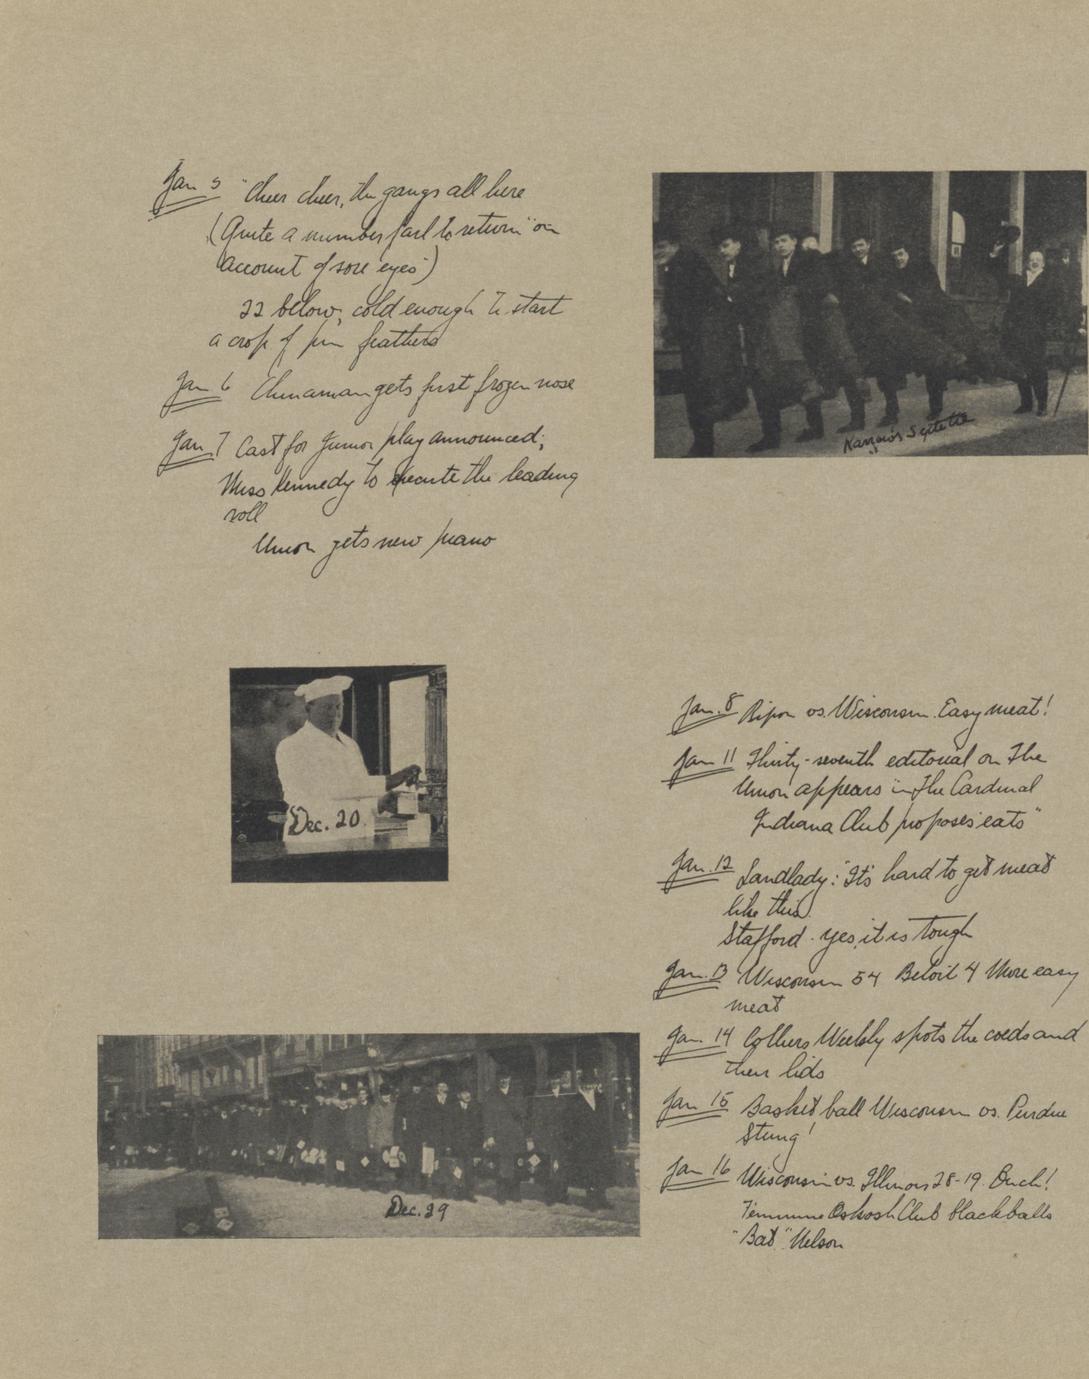 Jan 5 "Cheer cheer, the gangs all here
(Quite a number fail to return "on
account of sore eyes")
22 below, cold enough to start
a crop of pin feathers
Jan 6 Chinaman gets first frozen nose
Jan. 7 Cast for Junior play announced;
Miss Kennedy to execute the leading
roll
Union gets new piano
Septette
Dec. 20
Dec. 29
Jan. 8 Ripon vs. Wisconsin. Easy meat!
Jan 11 Thirty-seventh editorial on The
Union appears in The Cardinal
Indiana Club proposes "eats"
Jan. 12 Landlady: "It's hard to get meat
like this.
Stafford - yes, it is tough
Jan. 13 Wisconsin 54 Beloit 4 More easy
meat
Jan. 14 Colliers Weekly spots the coeds and
their lids
Jan 15 Basket ball Wisconsin vs. Purdue
Stung!
Jan 16 Wisconsin vs. Illinois 28-19. Ouch!
Oskosh Club blackballs
"Bat" Nelson